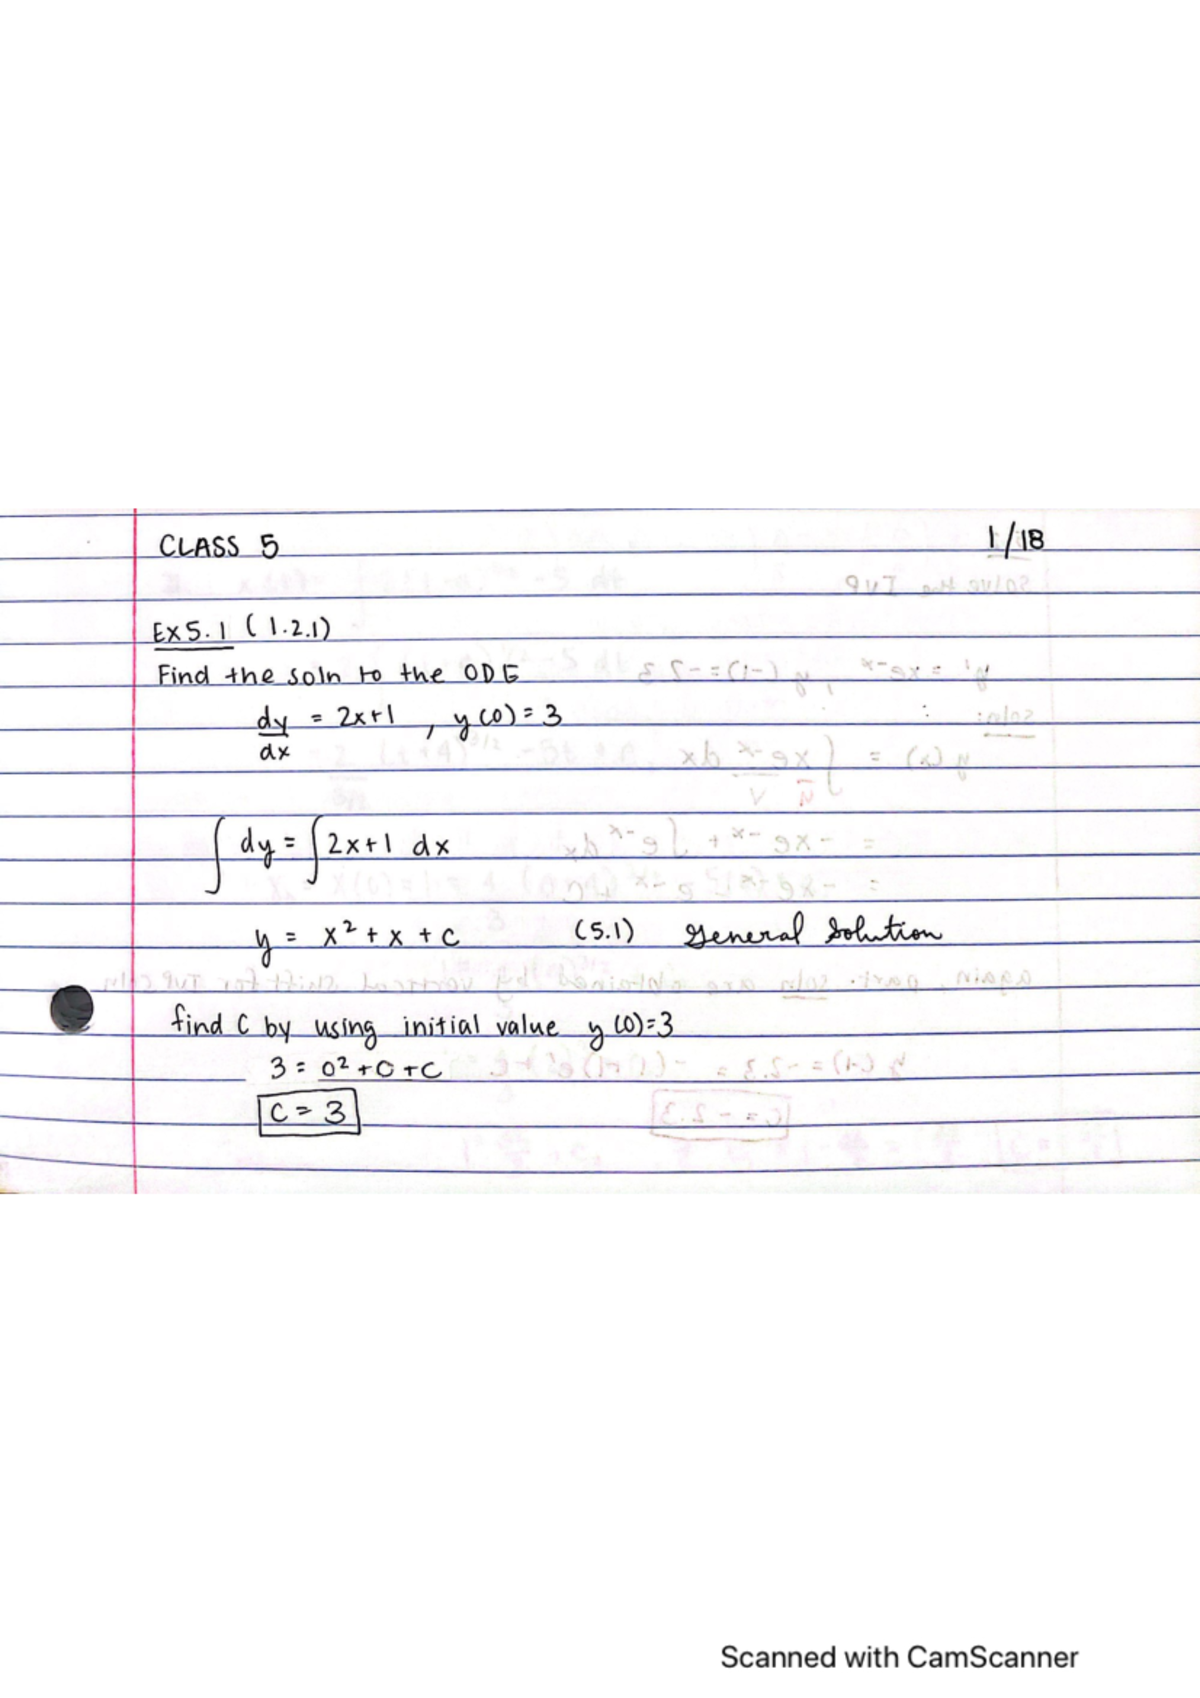 CLASS 5 1/18
Ex 5.1 (1.2.1)
Find the soln to the ODE
dy/dx = 2x+1 , y(0) = 3
∫ dy = ∫ 2x+1 dx
y = x² + x + c (5.1) General Solution
find C by using initial value y(0)=3
3 = 0² + 0 + C
C = 3
Scanned with CamScanner